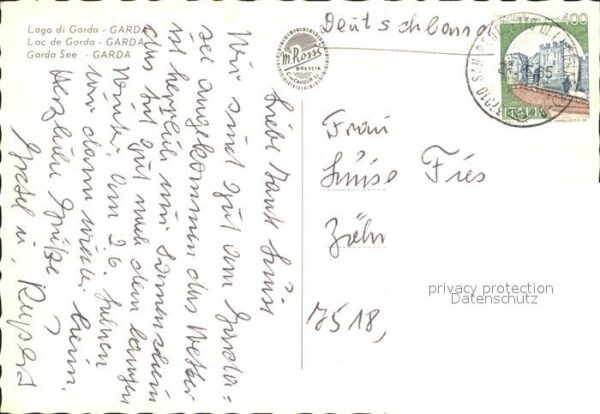 Lago di Garda - GARDA
Lac de Garda - GARDA
Garda See - GARDA
M. Rossi
BRESCIA
Deutschland
400
ITALIA
Liebe Tante Luise
Wir sind gut am Garda-
see angekommen das Wetter
ist herrlich mit Sonnenschein
das tut gut nach dem langen
Winter. Am 26. fahren
wir dann wieder heim.
Herzliche Grüße
u. Rupert
Frau
Luise Fies
7518,
privacy protection
Datenschutz